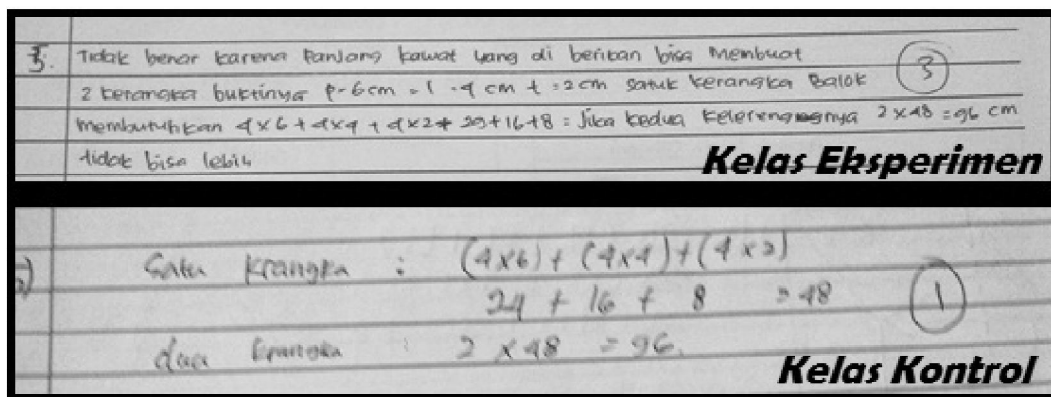 5. Tidak benar karena panjang kawat yang di berikan bisa membuat
3
2 kerangka buktinya p = 6 cm = l = 4 cm t = 2 cm satuk kerangka Balok
membutuhkan 4x6 + 4x4 + 4x2 + 29+16+8 = Jika kedua 2 x 48 = 96 cm
tidak bisa lebih
Kelas Eksperimen
5) Satu krangka : (4x6) + (4x4) + (4x2)
24 + 16 + 8 = 48
1
dua krangka : 2 x 48 = 96.
Kelas Kontrol